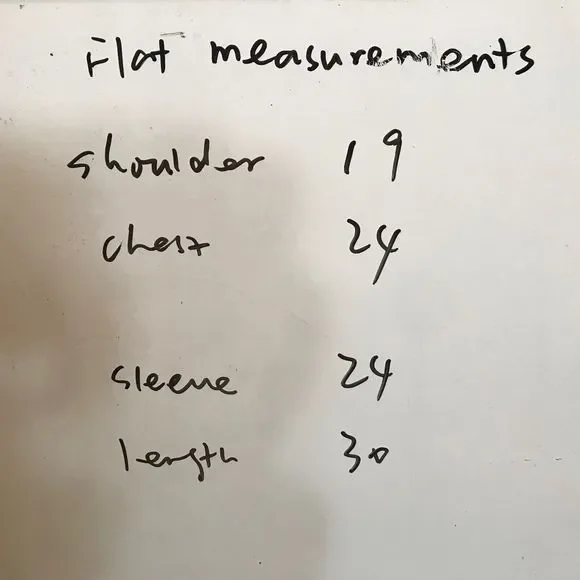 Flat measurements
shoulder 19
chest 24
sleeve 24
length 30